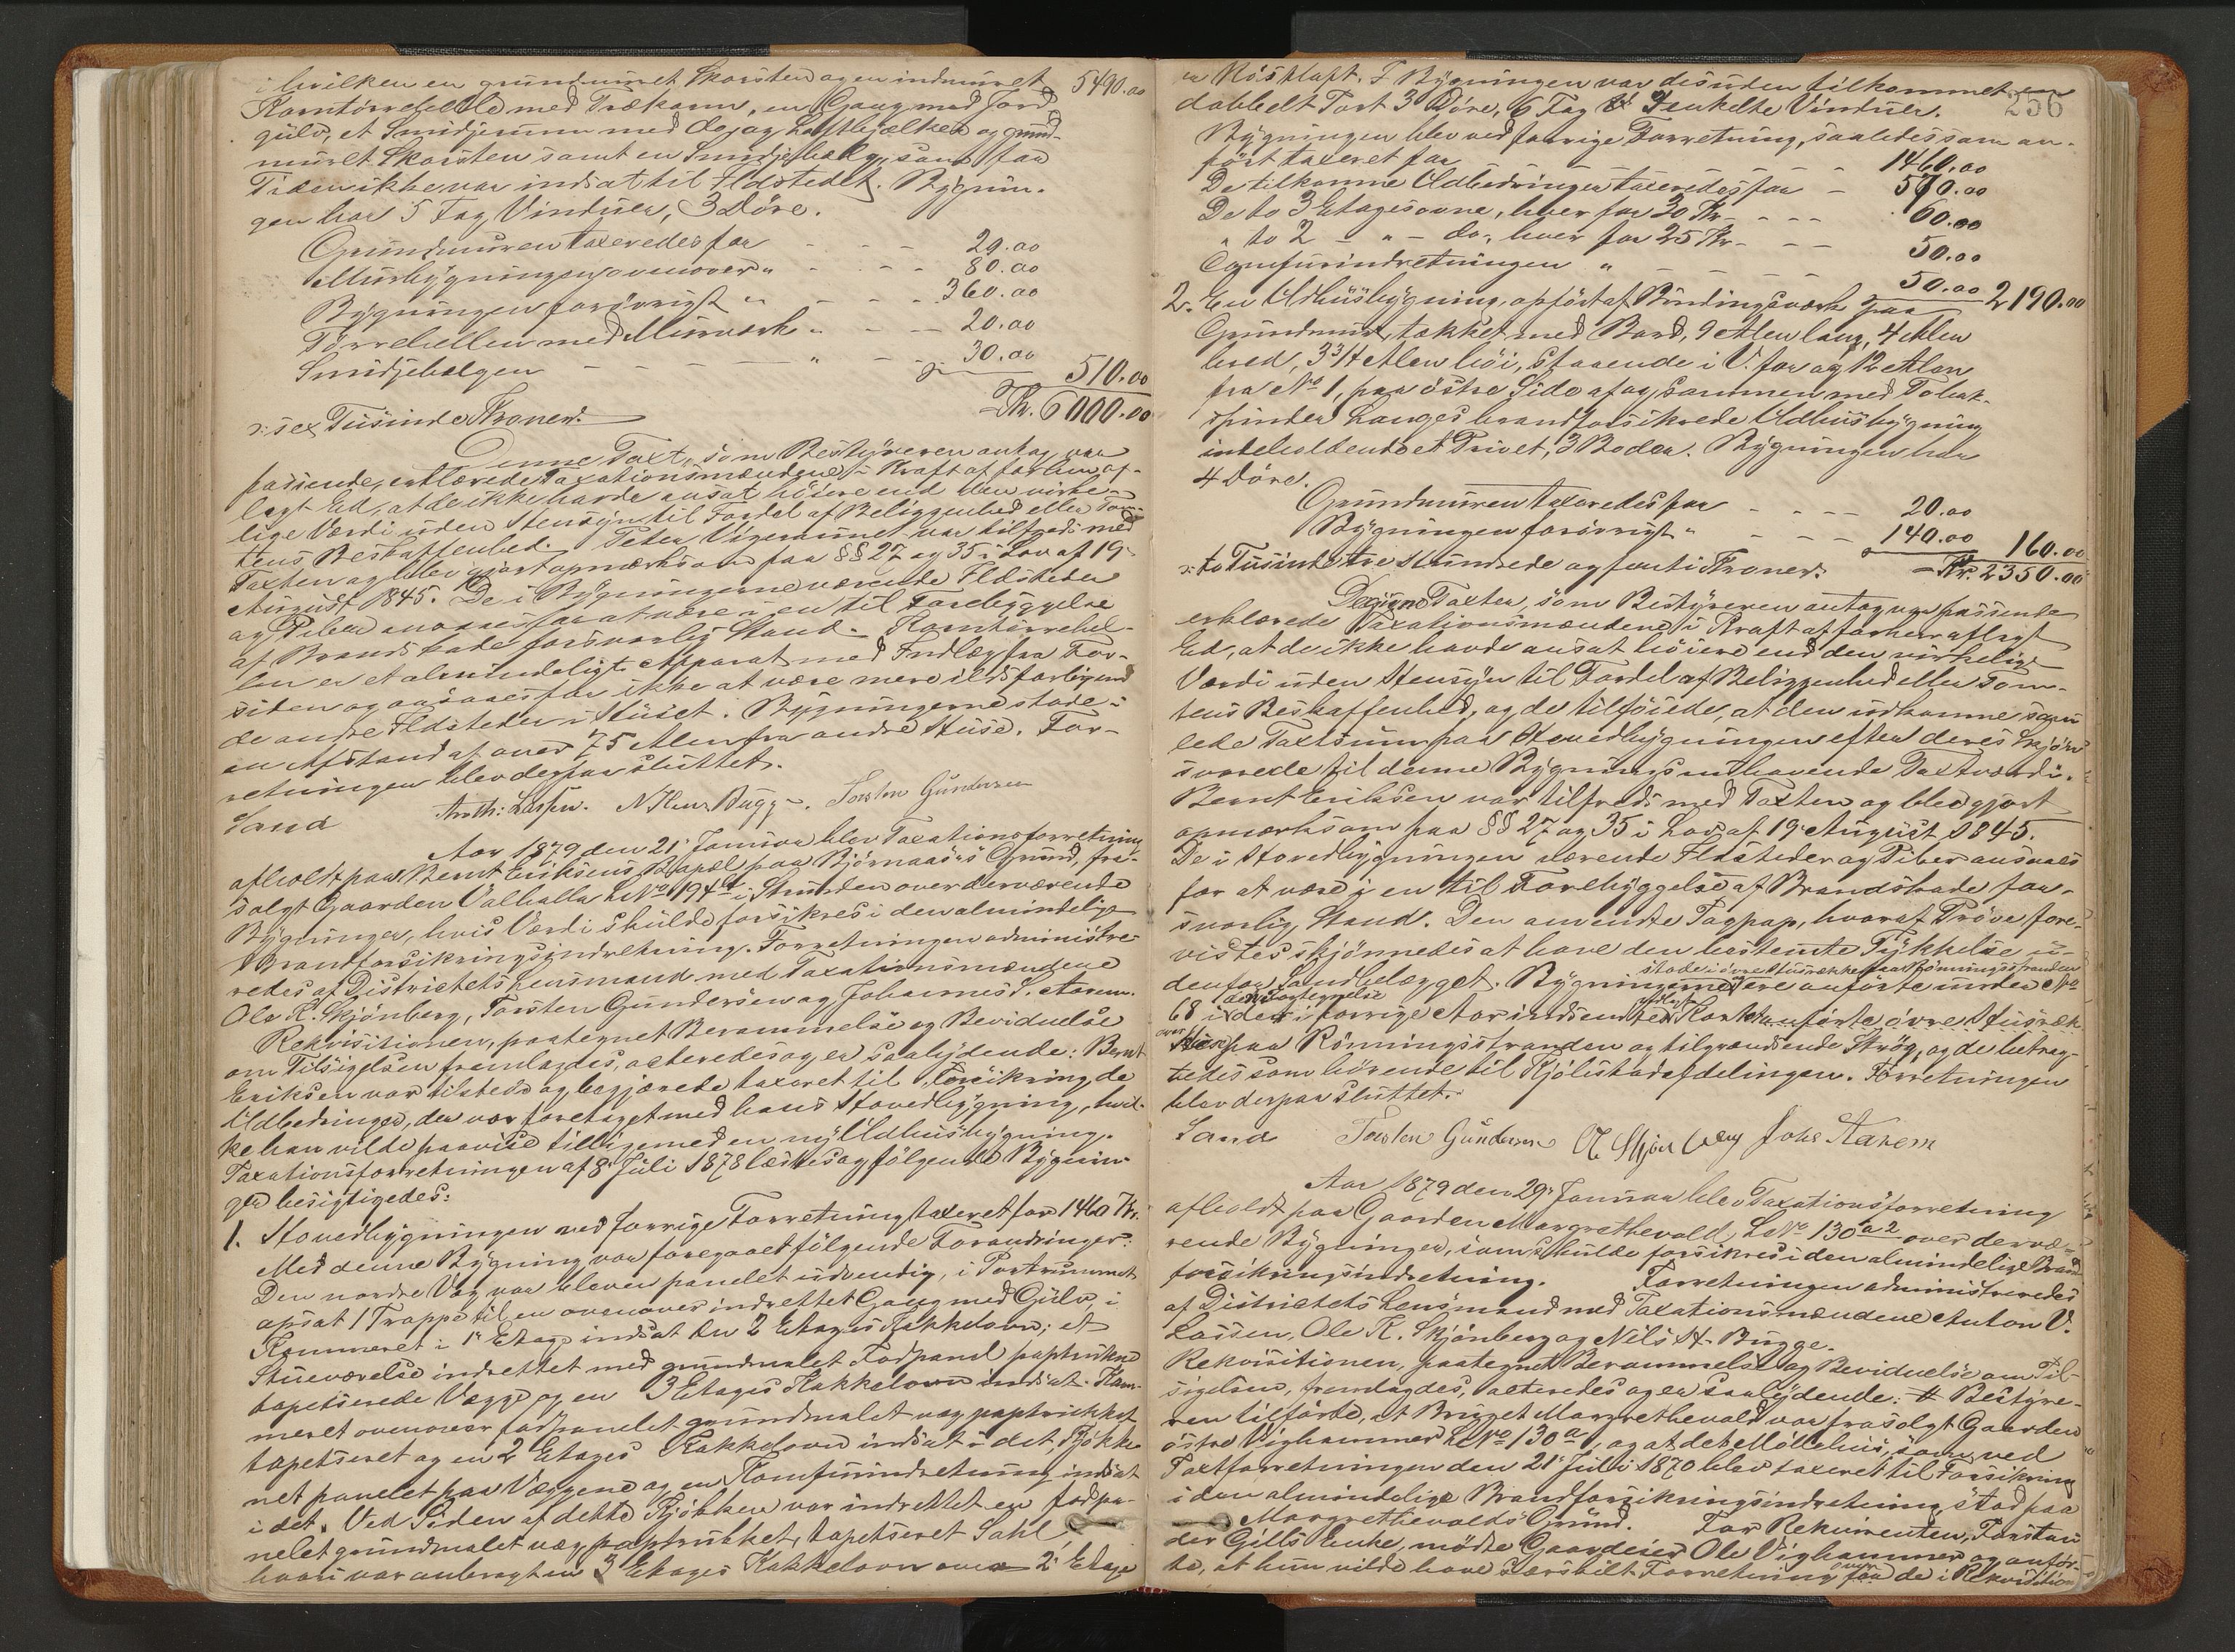 i hvilken en grundmuret Skorsten og en indmuret 5490.00
Korntørrehelle med Trækarm, en Gang med Jord-
gulv, et Smidjerum med do, og Loftbjælker og grund-
muret Skorsten samt en Smidjebælg, som paa
Tiden ikke var indsat til Ildstedet. Bygnin-
gen har 5 Fag Vinduer, 3 Døre.
Grundmuren taxeredes for - - - 20.00
Murbygningen ovenover " - - - 80.00
Bygningen forøvrigt " - - - 360.00
Tørrehellen med Murværk " - - 20.00
Smidjebælgen - - - " - - 30.00 510.00
Kr. 6000.00
ɔ: sex Tusinde Kroner.
Denne Taxt, som Bestyreren antog var
passende, erklærede Taxationsmændene i Kraft af forhen af-
lagt Ed, at de ikke havde ansat høiere end den virke-
lige Værdi uden Hensyn til Fordel af Beliggenhed eller Tom-
tens Beskaffenhed. Peter Vigemund var tilfreds med
Taxten og blev gjort opmærksom paa §§ 27 og 35 i Lov af 19
August 1845. De i Bygningerne værende Ildsteder
og Piber ansaaes for at være i en til Forebyggelse
af Brandskade forsvarlig Stand. Korntørrehel-
len er et almindeligt Apparat med Indlæg fra For-
siden og ansaaes for ikke at være mere ildsfarlig end
de andre Ildsteder i Huset. Bygningerne stode i
en Afstand af over 75 Alen fra andre Huse. For-
retningen blev derpaa sluttet.
Sand Anth: Lassen. N Hen Bugge. Torsten Gundersen
Aar 1879 den 21 Januar blev Taxationsforretning
afholdt paa Bernt Eriksens Bopæl paa Bjørnaasens Grund, fra-
solgt Gaarden Valhalla LNo 194 b i Stranden over derværende
Bygninger, hvis Værdi skulde forsikres i den almindelige
Brandforsikringsindretning. Forretningen administre-
redes af Distriktets Lensmand med Taxationsmændene
Ole K. Skjønberg, Torsten Gundersen og Johannes S. Aarem.
Rekvisitionen, paategnet Berammelse og Bevidnelse
om Tilsigelsen fremlagdes, acteredes og er saalydende: Bernt
Eriksen var tilstede og begjærede taxeret til Forsikring, de
Udbedringer, der var foretaget med hans Hovedbygning, hvil-
ke han vilde paavise tilligemed en ny Udhusbygning.
Taxationsforretningen af 8 Juli 1878 læstes og følgende Bygnin-
ger besigtigedes:
1. Hovedbygningen ved forrige Forretning taxeret for 1460 Kr.
Med denne Bygning var foregaaet følgende Forandringer:
Den nordre Væg var bleven panelet udvendig, i Portrummet
opsat 1 Trappe til en ovenover indrettet Gang med Gulv, i
Kammeret i 1 Etage indsat en 2 Etages Kakkelovn; et
Stueværelse indrettet med grundmalet Fodpanel paptrukne
tapetserede Vægge og en 3 Etages Kakkelovn indsat. Kam-
meret ovenover fodpanelet grundmalet væg paptrukket
tapetseret og en 2 Etages Kakkelovn indsat i det, Kjøkke-
net panelet paa Væggene og en Komfurindretning indsat
i det. Ved Siden af dette Kjøkken var indrettet en fodpa-
nelet grundmalet væg paptrukket, tapetseret Sahl,
hvori var anbragt en 3 Etages Kakkelovn over 2 Etage
256
en Røstloft. I Bygningen var desuden tilkommet en
dobbelt Port 3 Døre, 6 Fag Enkelte Vinduer.
Bygningen blev ved forrige Forretning, saaledes som an-
ført taxeret for - - - 1460.00
De tilkomne Udbedringer taxeredes for - 570.00
De to 3 Etages ovne, hver for 30 Kr - - - 60.00
" to 2 - " - do, hver for 25 Kr - - 50.00
Comfurindretningen " - - - 50.00 2190.00
2. En Udhusbygning, opført af Bindingsværk paa
Grundmur, tækket med Bord, 9 Alen lang, 4 Alen
bred, 3 3/4 Alen høi, staaende i V. for og 12 Alen
fra No 1, paa østre Side af og sammen med Tobak-
spinder Langes brandforsikrede Udhusbygning
indeholdende et Privet, 3 Boder. Bygningen har
4 Døre.
Grundmuren taxeredes for - - - 20.00
Bygningen forøvrigt " - - - 140.00 160.00
ɔ: to Tusinde tre Hundrede og femti Kroner. Kr. 2350.00
Denne Taxten, som Bestyreren antog var passende
erklærede Taxationsmændene i Kraft af forhen aflagt
Ed, at de ikke havde ansat høiere end den virkelige
Værdi uden Hensyn til Fordel af Beliggenhed eller Tom-
tens Beskaffenhed, og de tilføiede, at den udkomne sam-
lede Taxtsum paa Hovedbygningen efter deres Skjøn
svarede til denne Bygnings nuhavende Taxtværdi.
Bernt Eriksen var tilfreds med Taxten og blev gjort
opmærksom paa §§ 27 og 35 i Lov af 19 August 1845.
De i Hovedbygningen værende Ildsteder og Piber ansaaes
for at være i en til Forebyggelse af Brandskade for-
svarlig Stand. Den anvendte Tagpap, hvoraf Prøve fore-
vistes skjønnedes at have den bestemte Tykkelse u-
denfor Sandbelægget. Bygningerne stode i øvre Husrække paa Rønningsstranden og ere anførte under No
68 i den Fortegnelse i forrige Aar indsendte Kart anførte øvre Husræk
over Huse paa Rønningsstranden og tilgrændsende Strøg, og de betrag-
tedes som hørende til Kjølstadafdelingen. Forretningen
blev derpaa sluttet.
Sand Torsten Gundersen O K Skjønberg Johs Aarem
Aar 1879 den 29 Januar blev Taxationsforretning
afholdt paa Gaarden Margrethevold, LNo 130 a2 over dervære-
rende Bygninger, som skulde forsikres i den almindelige Brand-
forsikringsindretning. Forretningen administreredes
af Distriktets Lensmand med Taxationsmændene Anton V.
Lassen, Ole K. Skjønberg og Nils H. Bugge.
Rekvisitionen, paategnet Berammelse og Bevidnelse om Til-
sigelsen, fremlagdes, acteredes og er saalydende: Bestyre-
ren tilførte, at Bruget Margrethevold var frasolgt Gaarden
østre Vighammer LNo 130 a, og at det Møllehus, som ved
Taxtforretningen den 21 Juli 1870 blev taxeret til Forsikring
i den almindelige Brandforsikringsindretning stod paa
Margrethevolds Grund. For Rekvirenten, Forstan-
der Gills Enke, mødte Gaardeier Ole Vighammer og anfør-
te, at hun vilde have særskilt Forretning over de i Rekvisition